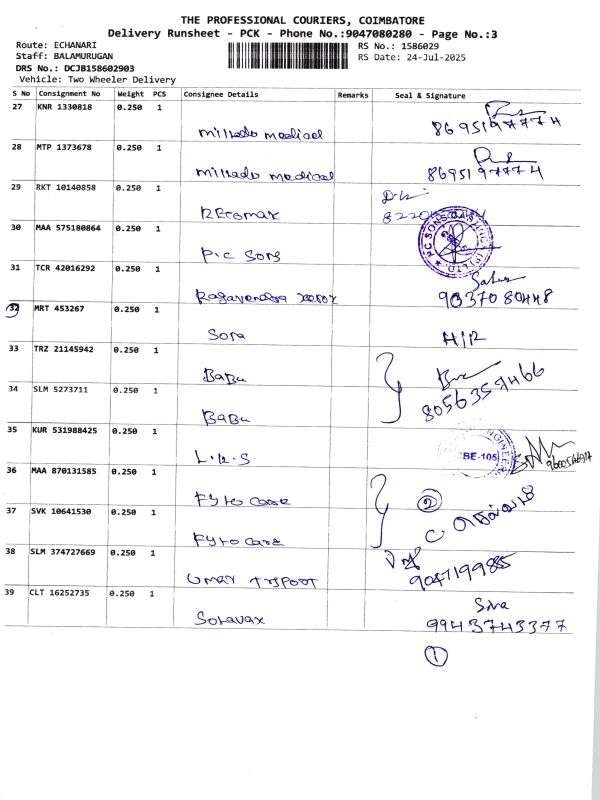 THE PROFESSIONAL COURIERS, COIMBATORE
Delivery Runsheet - PCK - Phone No.:9047080280 - Page No.:3
Route: ECHANARI
RS No.: 1586029
Staff: BALAMURUGAN
RS Date: 24-Jul-2025
DRS No.: DCJB158602903
Vehicle: Two Wheeler Delivery
S No Consignment No Weight PCS Consignee Details Remarks Seal & Signature
27 KNR 1330818 0.250 1 medical 8695197774
28 MTP 1373678 0.250 1 medical 8695197774
29 RKT 10140858 0.250 1
30 MAA 575180864 0.250 1 P.C Sons
31 TCR 42016292 0.250 1 Ragavendra xerox 9037080448
32 MRT 453267 0.250 1 Sora
33 TRZ 21145942 0.250 1 BaBu
34 SLM 5273711 0.250 1 BaBu
35 KUR 531988425 0.250 1 CBE-105
36 MAA 870131585 0.250 1 Fyto care 2
37 SVK 10641530 0.250 1 Fyto care
38 SLM 374727669 0.250 1
39 CLT 16252735 0.250 1 Siva
9943743377
1